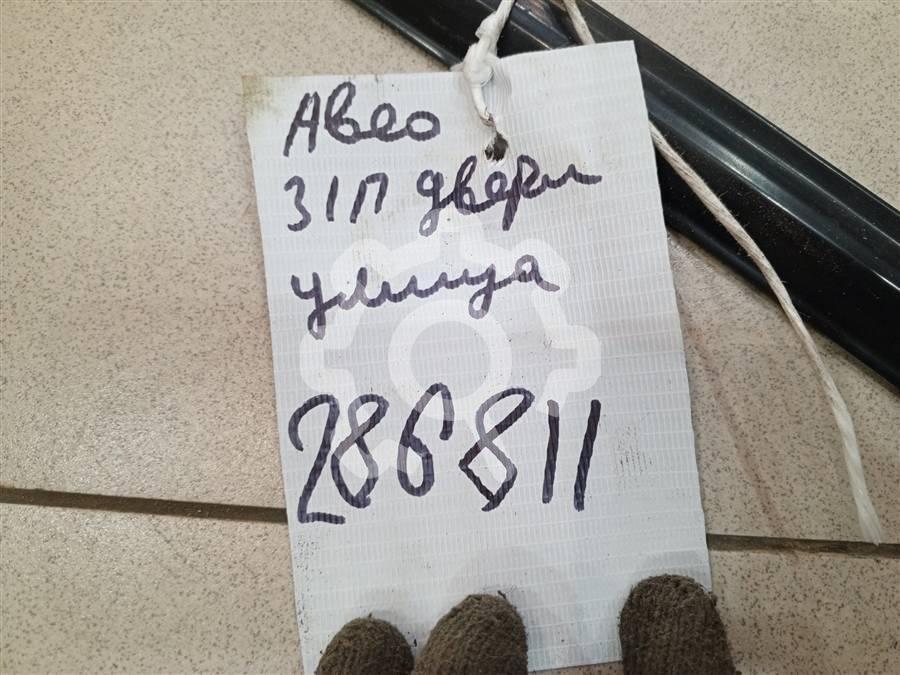 Авео
З/П двери
улица
286811